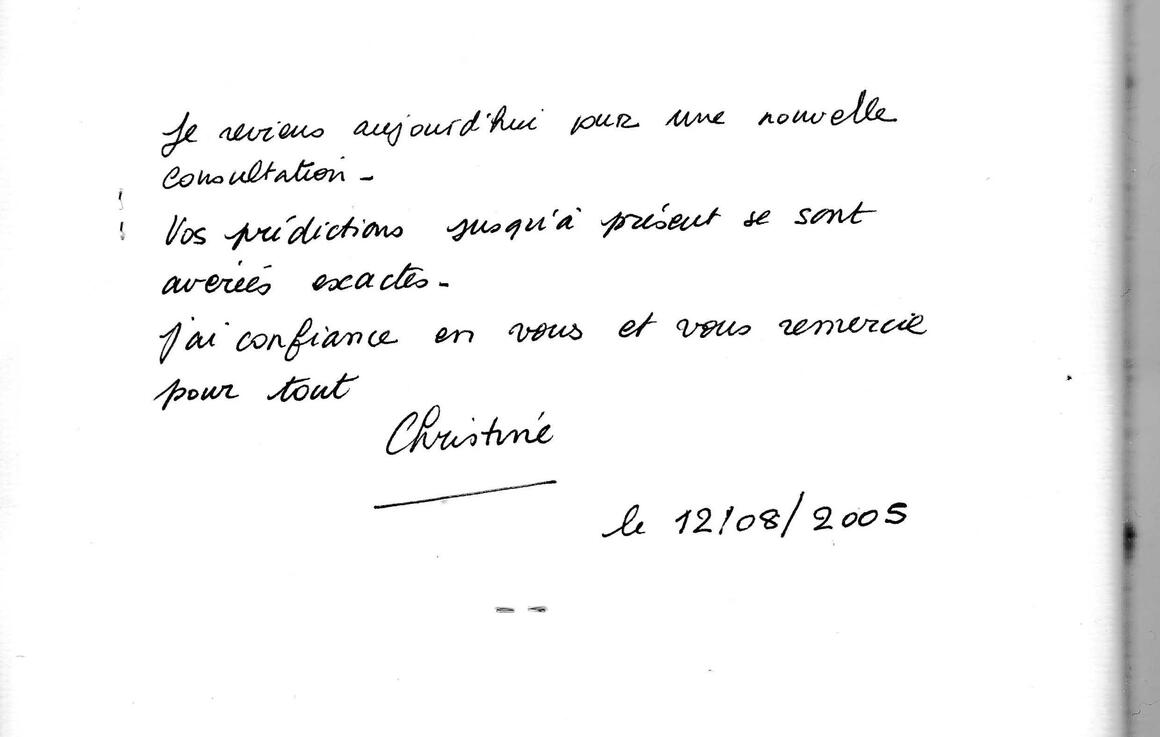 Je reviens aujourd'hui pour une nouvelle
consultation -
Vos prédictions jusqu'à présent se sont
averiés exactes -
J'ai confiance en vous et vous remercie
pour tout
Christine
le 12/08/2005